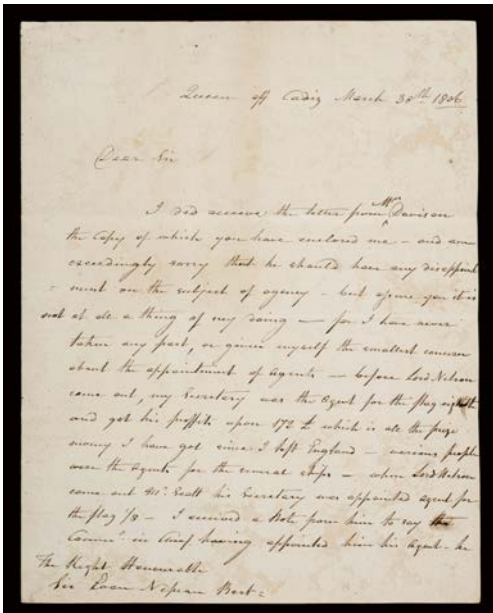 Queen off Cadiz March 30th 1806
Dear Sir
I did receive the letter from Mr. Davison
the Copy of which you have enclosed me – and am
exceedingly sorry that he should have any disappoint
-ment on the subject of agency – but assure you it is
not at all a thing of my doing – for I have never
taken any part, or given myself the smallest concern
about the appointment of Agents – before Lord Nelson
came out, my Secretary was the Agent for the flag eighth
and got his proffits upon 172 £ which is all the prize
money I have got since I left England – various people
were the Agents for the several ships – when Lord Nelson
came out Mr. Scott his Secretary was appointed agent for
the flag 1/8 – I received a Note from him to say the
Comm.r in Chief having appointed him his Agent – he
The Right Honourable
Sir Evan Nepean Bart: